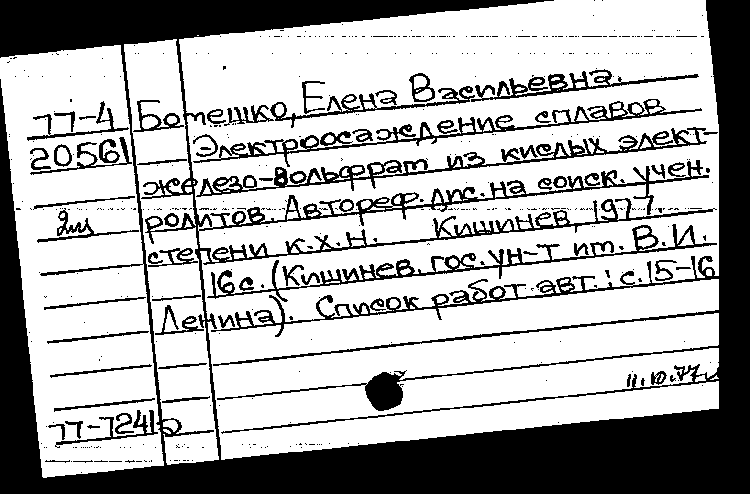 77-4 Ботешко, Елена Васильевна.
20561 Электроосаждение сплавов
железо-вольфрат из кислых элект-
ролитов. Автореф. дис. на соиск. учен.
степени к.х.н. Кишинев, 1977.
16 с. (Кишинев. гос. ун-т им. В.И.
Ленина). Список работ авт.: с. 15-16
11.10.77
77-7241